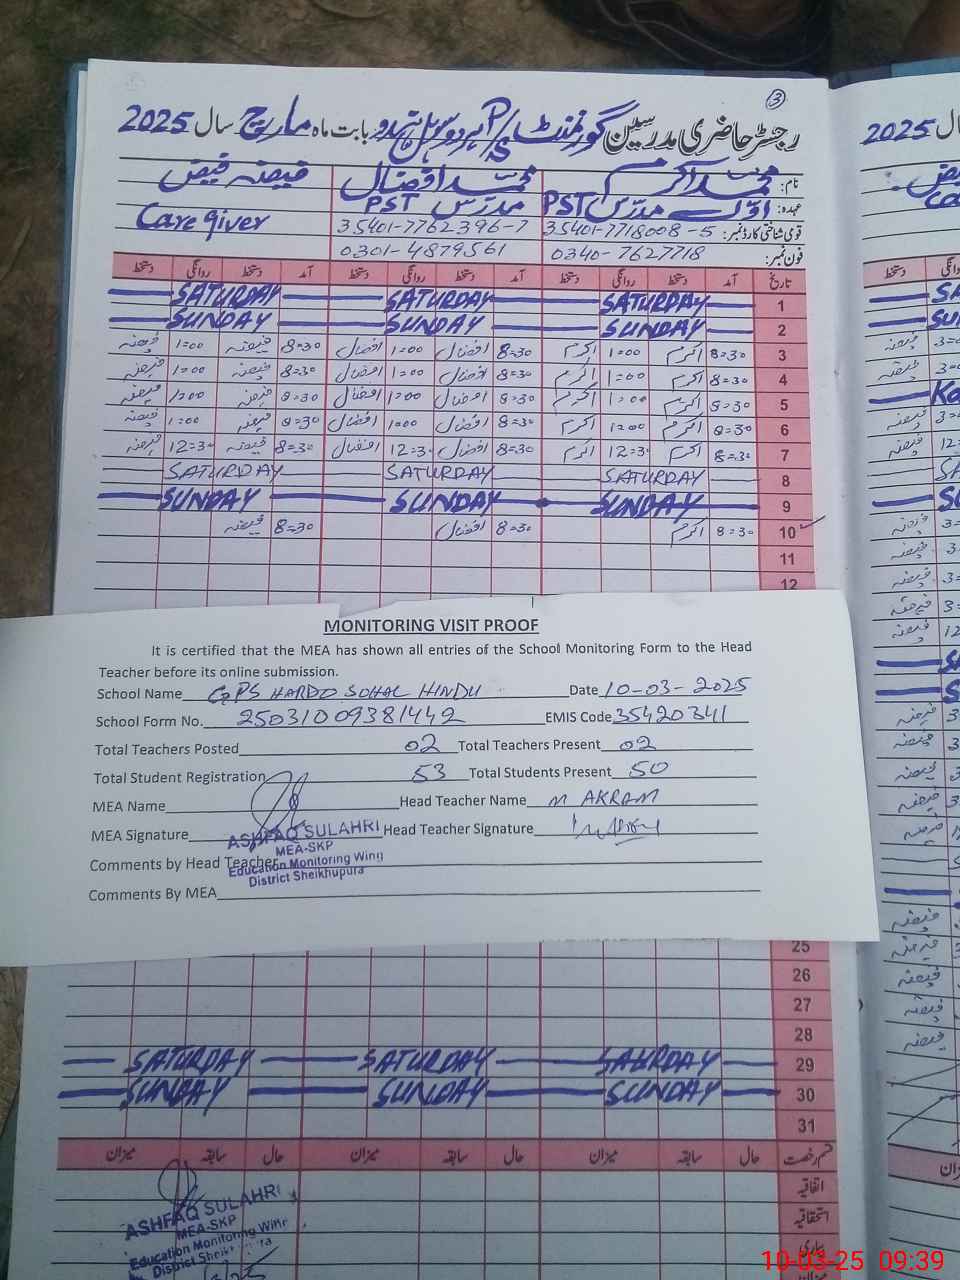 ③
رجسٹر حاضری مدرسین گورنمنٹ P/S ہردو سوہل ہندو بابت ماہ مارچ سال 2025
نام: محمد اکرم محمد افضال فیضہ فیض
عہدہ: اول مدرس PST مدرس PST Care giver
قومی شناختی کارڈ نمبر: 35401-7718008-5 35401-7762396-7
فون نمبر: 0340-7627718 0301-4879561
تاریخ آمد دستخط روانگی دستخط آمد دستخط روانگی دستخط آمد دستخط روانگی دستخط
1 SATURDAY SATURDAY SATURDAY
2 SUNDAY SUNDAY SUNDAY
3 8=30 اکرم 1=00 اکرم 8=30 افضال 1=00 افضال 8=30 فیضہ 1=00 فیضہ
4 8=30 اکرم 1=00 اکرم 8=30 افضال 1=00 افضال 8=30 فیضہ 1=00 فیضہ
5 8=30 اکرم 1=00 اکرم 8=30 افضال 1=00 افضال 8=30 فیضہ 1=00 فیضہ
6 8=30 اکرم 1=00 اکرم 8=30 افضال 1=00 افضال 8=30 فیضہ 1=00 فیضہ
7 8=30 اکرم 12=30 اکرم 8=30 افضال 12=30 افضال 8=30 فیضہ 12=30 فیضہ
8 SATURDAY SATURDAY SATURDAY
9 SUNDAY SUNDAY SUNDAY
10 8=30 اکرم 8=30 افضال 8=30 فیضہ
11
12
MONITORING VISIT PROOF
It is certified that the MEA has shown all entries of the School Monitoring Form to the Head
Teacher before its online submission.
School Name GPS HARDO SOHAL HINDU Date 10-03-2025
School Form No. 25031009381442 EMIS Code 35420341
Total Teachers Posted 02 Total Teachers Present 02
Total Student Registration 53 Total Students Present 50
MEA Name Head Teacher Name M AKRAM
MEA Signature Head Teacher Signature
ASHFAQ SULAHRI
MEA-SKP
Education Monitoring Wing
District Sheikhupura
Comments by Head Teacher
Comments By MEA
25
26
27
28
29 SATURDAY SATURDAY SATURDAY
30 SUNDAY SUNDAY SUNDAY
31
قسم رخصت حال سابقہ میزان حال سابقہ میزان حال سابقہ میزان
اتفاقیہ
استحقاقیہ
بیماری
میزان
ASHFAQ SULAHRI
MEA-SKP
Education Monitoring Wing
2025
10-03-25 09:39